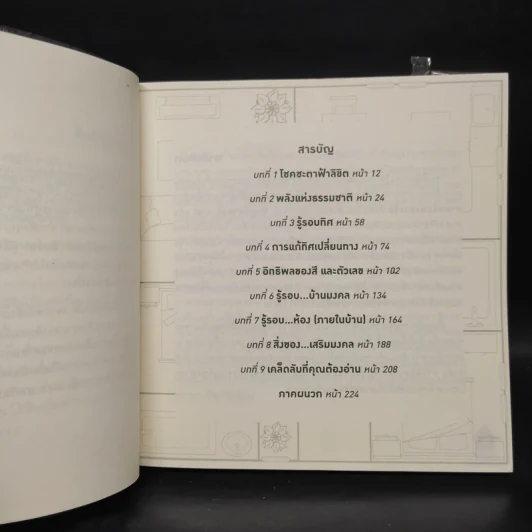 สารบัญ
บทที่ 1 โชคชะตาฟ้าลิขิต หน้า 12
บทที่ 2 พลังแห่งธรรมชาติ หน้า 24
บทที่ 3 รู้รอบทิศ หน้า 58
บทที่ 4 การแก้ทิศเปลี่ยนทาง หน้า 74
บทที่ 5 อิทธิพลของสี และตัวเลข หน้า 102
บทที่ 6 รู้รอบ...บ้านมงคล หน้า 134
บทที่ 7 รู้รอบ...ห้อง (ภายในบ้าน) หน้า 164
บทที่ 8 สิ่งของ...เสริมมงคล หน้า 188
บทที่ 9 เคล็ดลับที่คุณต้องอ่าน หน้า 208
ภาคผนวก หน้า 224